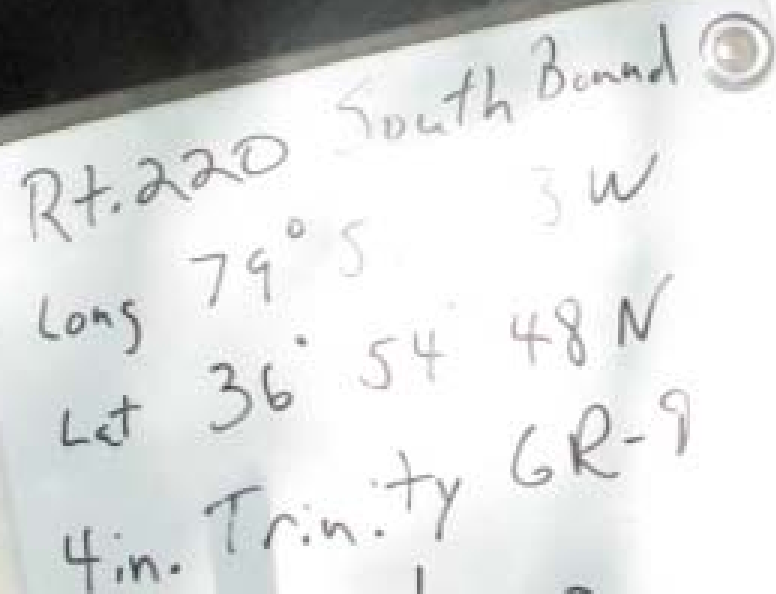 Rt. 220 South Bound
Long 79° 5 3 W
Lat 36° 54' 48 N
4in. Trinity GR-9